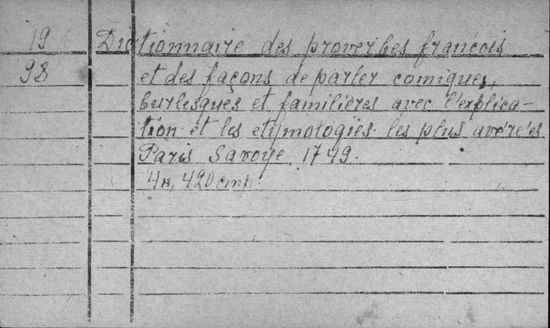 19 Dictionnaire des proverbes françois
98 et des façons de parler comiques,
burlesques et familières avec l'explica-
tion et les etymologies les plus avérées
Paris Savoye, 1749.
4н, 420 стр.